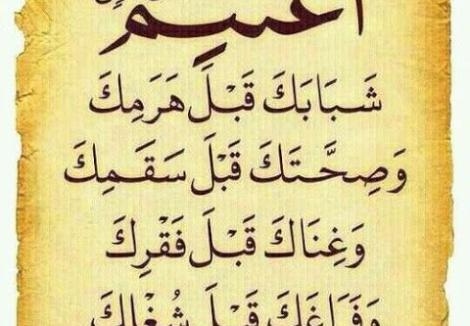 اغتنم
شَبَابَكَ قَبْلَ هَرَمِكَ
وَصِحَّتَكَ قَبْلَ سَقَمِكَ
وَغِنَاكَ قَبْلَ فَقْرِكَ
وَفَرَاغَكَ قَبْلَ شُغْلِكَ